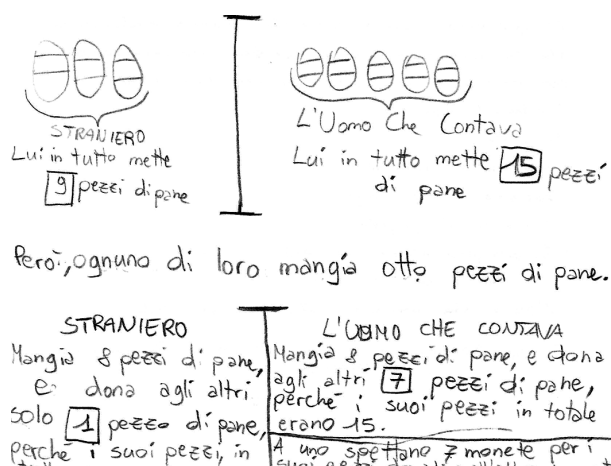 STRANIERO
Lui in tutto mette
9 pezzi di pane
L'Uomo Che Contava
Lui in tutto mette 15 pezzi
di pane
Però, ognuno di loro mangia otto pezzi di pane.
STRANIERO
Mangia 8 pezzi di pane,
e dona agli altri
solo 1 pezzo di pane,
perché i suoi pezzi, in
L'UOMO CHE CONTAVA
Mangia 8 pezzi di pane, e dona
agli altri 7 pezzi di pane,
perché i suoi pezzi in totale
erano 15.
A uno spettano 7 monete per i